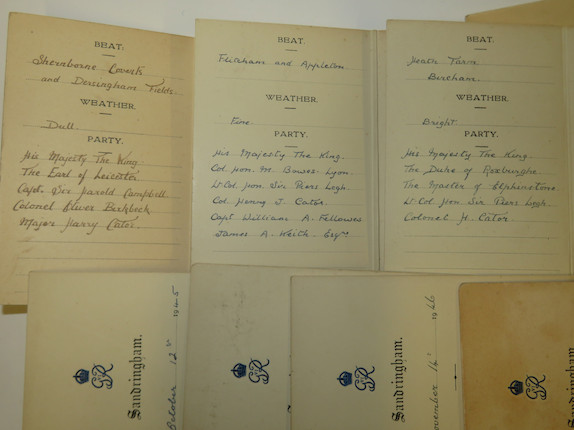 BEAT.
Shernborne Coverts
and Dersingham Fields
WEATHER.
Dull.
PARTY.
His Majesty The King.
The Earl of Leicester
Capt. Sir Harold Campbell
Colonel Oliver Birkbeck
Major Harry Cator.
BEAT.
Flitcham and Appleton
WEATHER.
Fine
PARTY.
His Majesty The King.
Col. Hon. M. Bowes Lyon.
Lt. Col. Hon. Sir Piers Legh.
Col. Henry J. Cator.
Capt William A. Fellowes
James A. Keith. Esqre
BEAT.
Heath Farm
Bircham.
WEATHER.
Bright.
PARTY.
His Majesty The King.
The Duke of Roxburghe
The Master of Elphinstone.
Lt. Col. Hon. Sir Piers Legh.
Colonel H. Cator
Sandringham.
October 12th 1945
GR
GR
Sandringham.
November 16th 1946
GR
GR